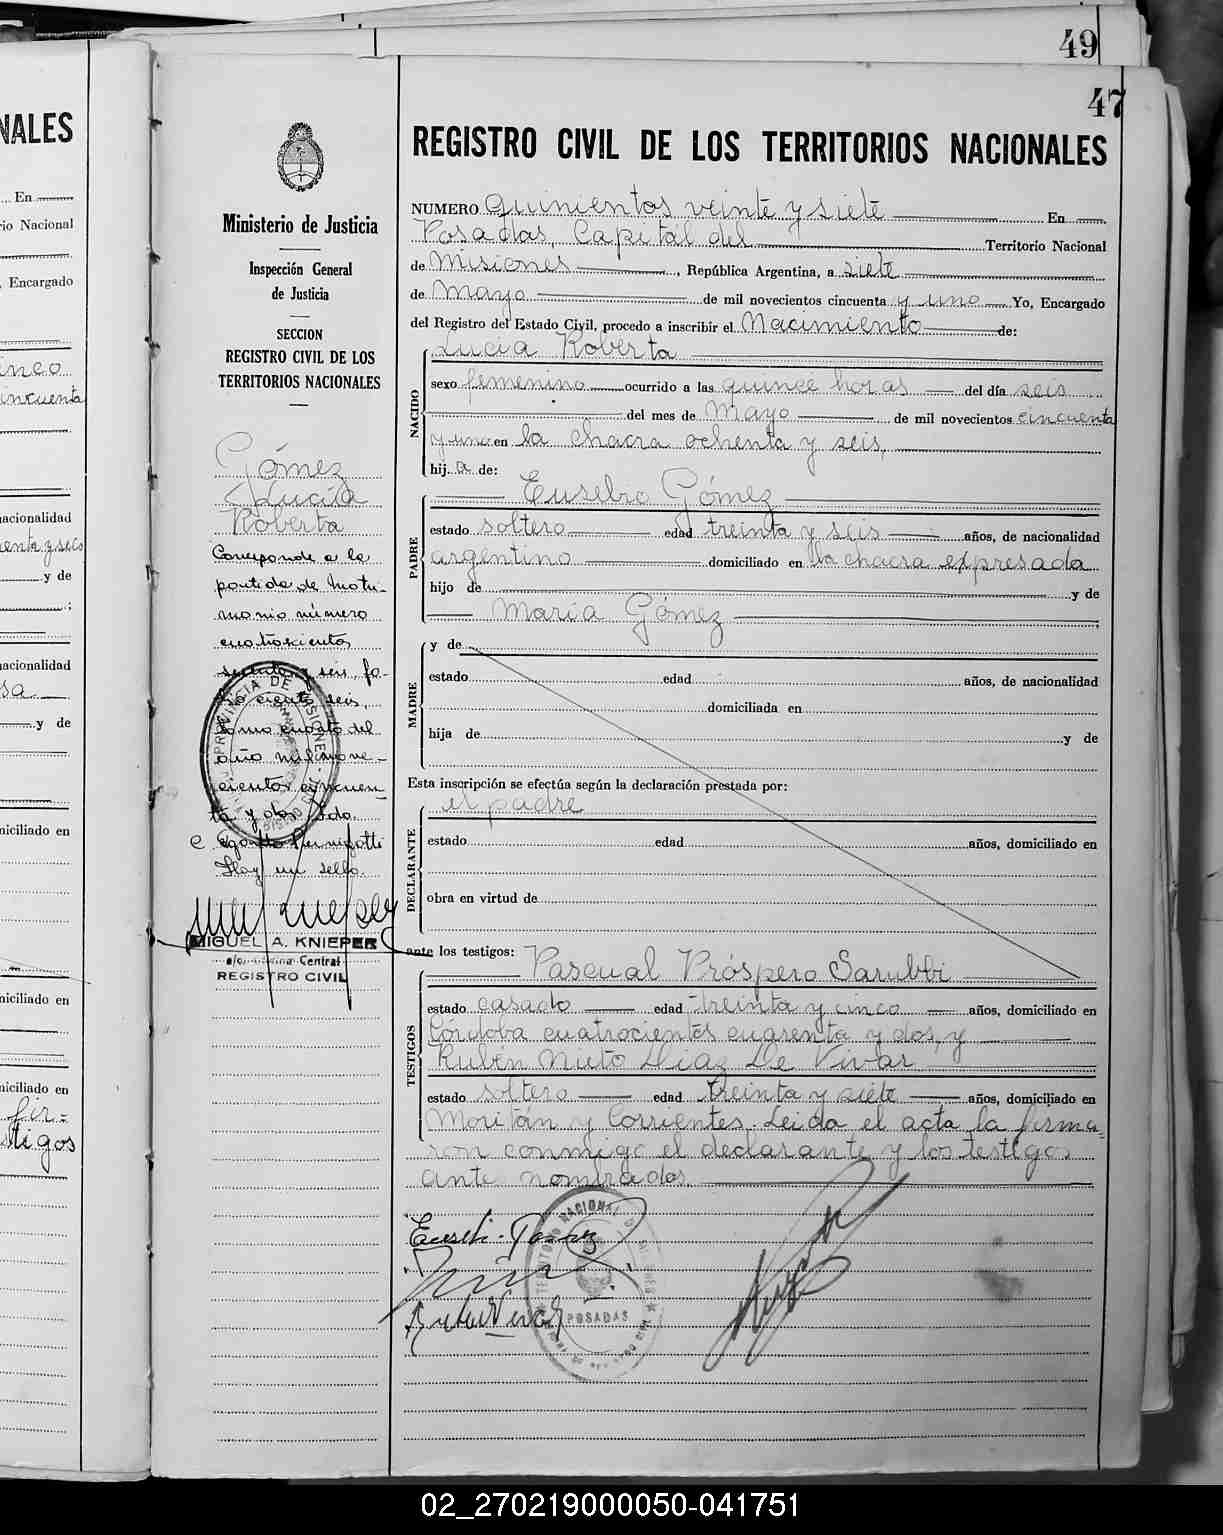 49
47
NALES
En
io Nacional
, Encargado
inco
incuenta
nacionalidad
y de
nacionalidad
y de
niciliado en
niciliado en
niciliado en
fir=
stigos
Ministerio de Justicia
Inspección General
de Justicia
SECCION
REGISTRO CIVIL DE LOS
TERRITORIOS NACIONALES
Gómez
Lucía
Roberta
Corresponde a la
partida de Matri-
monio número
cuatrocientos
sesenta y seis, fo-
seis,
tomo cuarto del
año mil nove-
cientos cincuen-
ta y dos
Hay un sello
MIGUEL A. KNIEPER
Central
REGISTRO CIVIL
REGISTRO CIVIL DE LOS TERRITORIOS NACIONALES
NUMERO quinientos veinte y siete En
Posadas, Capital del Territorio Nacional
de Misiones, República Argentina, a siete
de Mayo de mil novecientos cincuenta y uno Yo, Encargado
del Registro del Estado Civil, procedo a inscribir el Nacimiento de:
Lucía Roberta
NACIDO
sexo femenino ocurrido a las quince horas del día seis
del mes de Mayo de mil novecientos cincuenta
y uno en la chacra ochenta y seis,
hij a de:
Eusebio Gómez
PADRE
estado soltero edad treinta y seis años, de nacionalidad
argentino domiciliado en la chacra expresada
hijo de y de
María Gómez
y de
MADRE
estado edad años, de nacionalidad
domiciliada en
hija de y de
Esta inscripción se efectúa según la declaración prestada por:
el padre
DECLARANTE
estado edad años, domiciliado en
obra en virtud de
ante los testigos: Pascual Próspero Sarubbi
TESTIGOS
estado casado edad treinta y cinco años, domiciliado en
Córdoba cuatrocientos cuarenta y dos, y
Rubén Nieto Diaz De Vivar
estado soltero edad treinta y siete años, domiciliado en
Moritán y Corrientes. Leida el acta la firma=
ron conmigo el declarante y los testigos
ante nombrados.
POSADAS
02_270219000050-041751